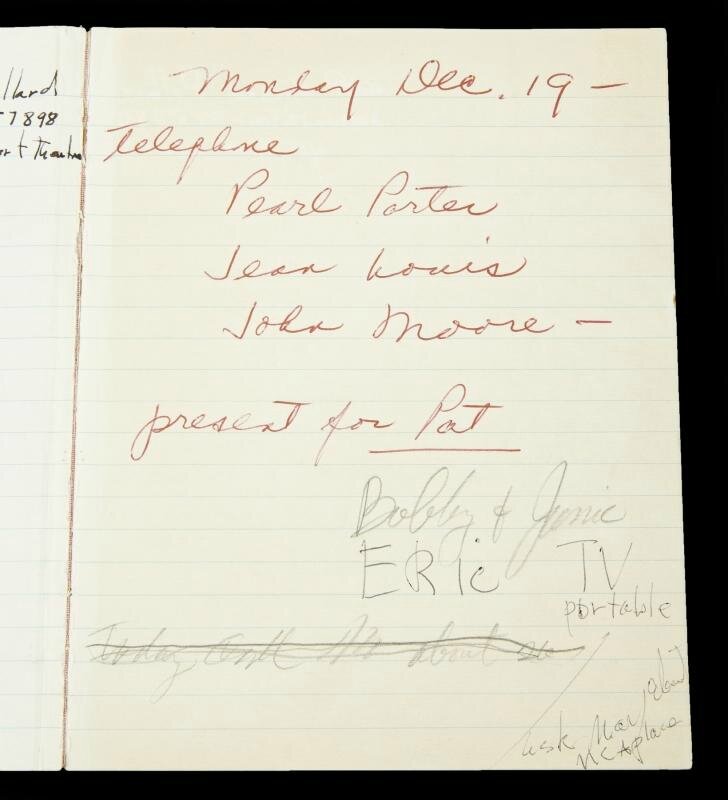 llard
7898
Monday Dec. 19 —
Telephone
Pearl Porter
Jean Louis
John Moore —
present for Pat
Bobby & Junie
ERic TV
portable
Today about
ask May